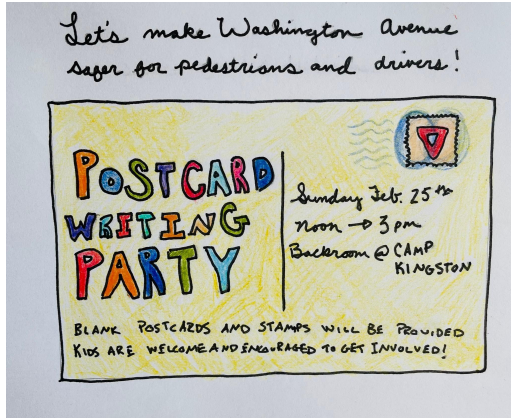 Let's make Washington Avenue
safer for pedestrians and drivers!
POSTCARD
WRITING
PARTY
Sunday Feb. 25th
noon → 3 pm
Backroom @ CAMP
KINGSTON
BLANK POSTCARDS AND STAMPS WILL BE PROVIDED
KIDS ARE WELCOME AND ENCOURAGED TO GET INVOLVED!